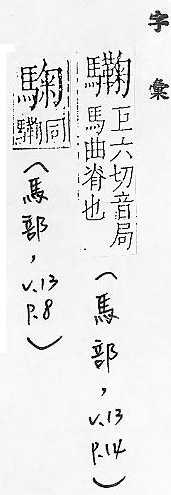 字彙
驧
巨六切音局
馬曲脊也
(馬部, v.13 p.14)
同
驧
(馬部, v.13 p.8)